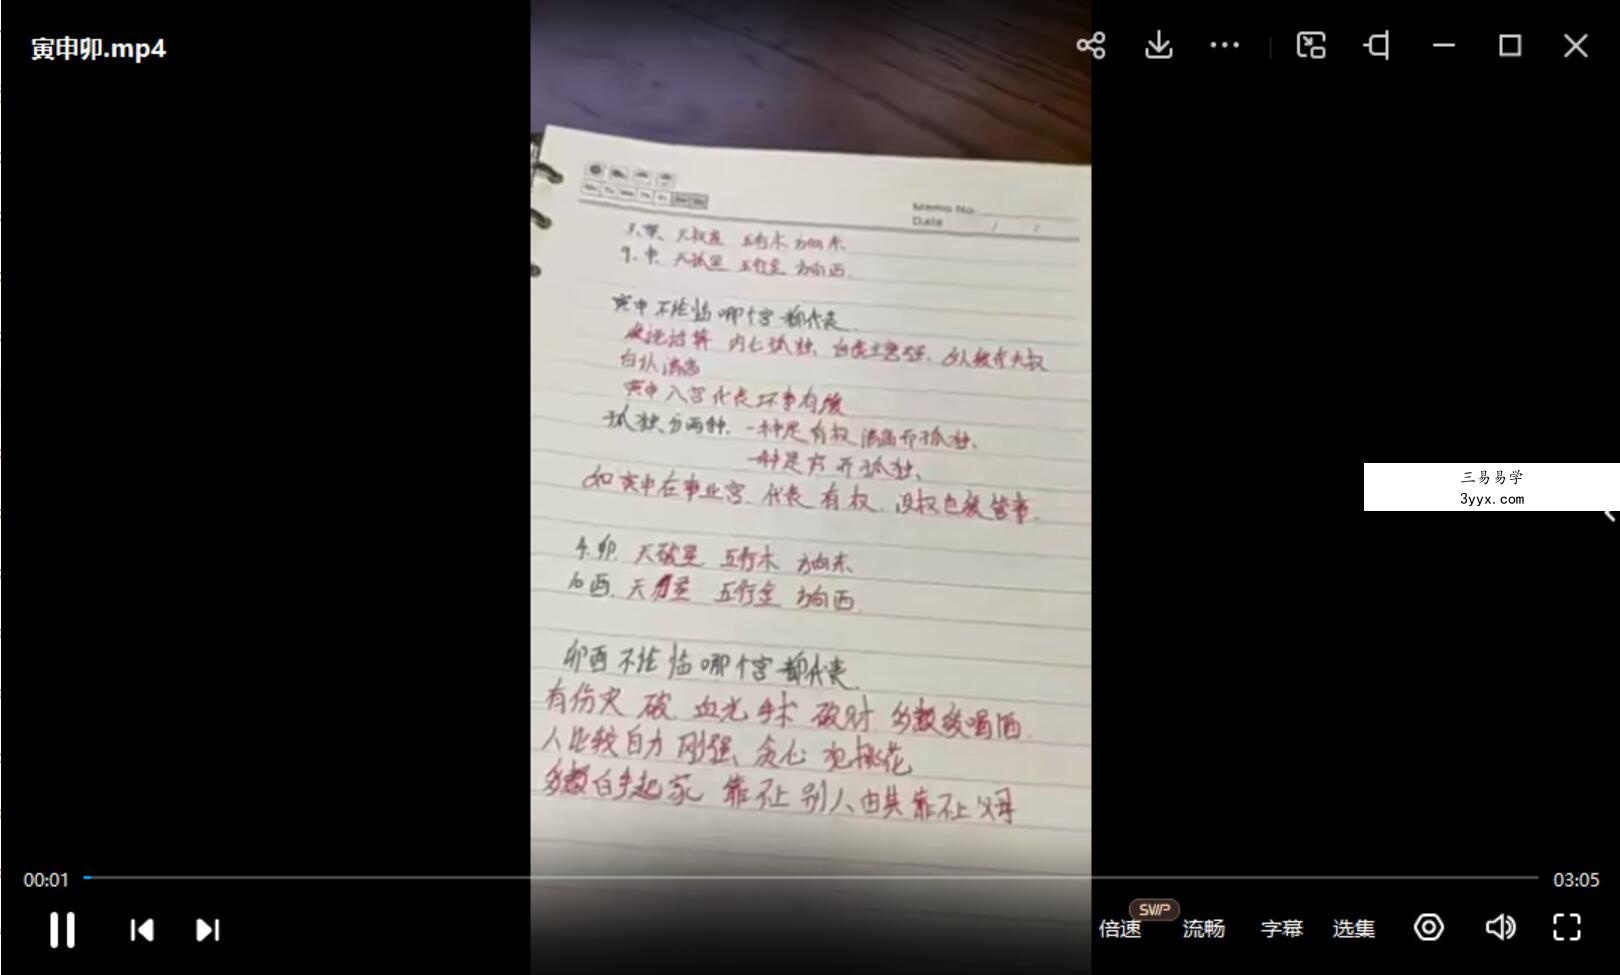 寅申卯.mp4
Memo No
Date / /
3、寅、天权星 五行木 方向东
9、申、天孤星 五行金 方向西.
寅申不论临哪个宫都代表.
内心孤独、
白仙
寅申入宫代表
孤独分两种、一种是有权 而孤独、
一种是穷而孤独、
如寅申在事业宫. 代表 有权、没权也 管事.
4.卯. 天破星 五行木 方向东
10酉. 天刃星 五行金 方向西.
卯酉不论临哪个宫都代表.
有伤灾 破. 血光 手术 破财. 多数 喝酒
人比较自力 刚强、贪心 犯桃花
多数白手起家 靠不上别人 由其靠不上父母
三易易学
3yyx.com
00:01
03:05
SVIP
倍速 流畅 字幕 选集